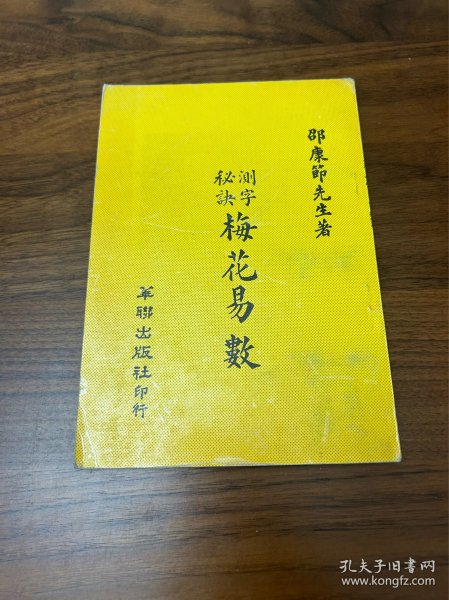 邵康節先生著
測字
秘訣
梅花易數
華聯出版社印行
孔夫子旧书网
www.kongfz.com